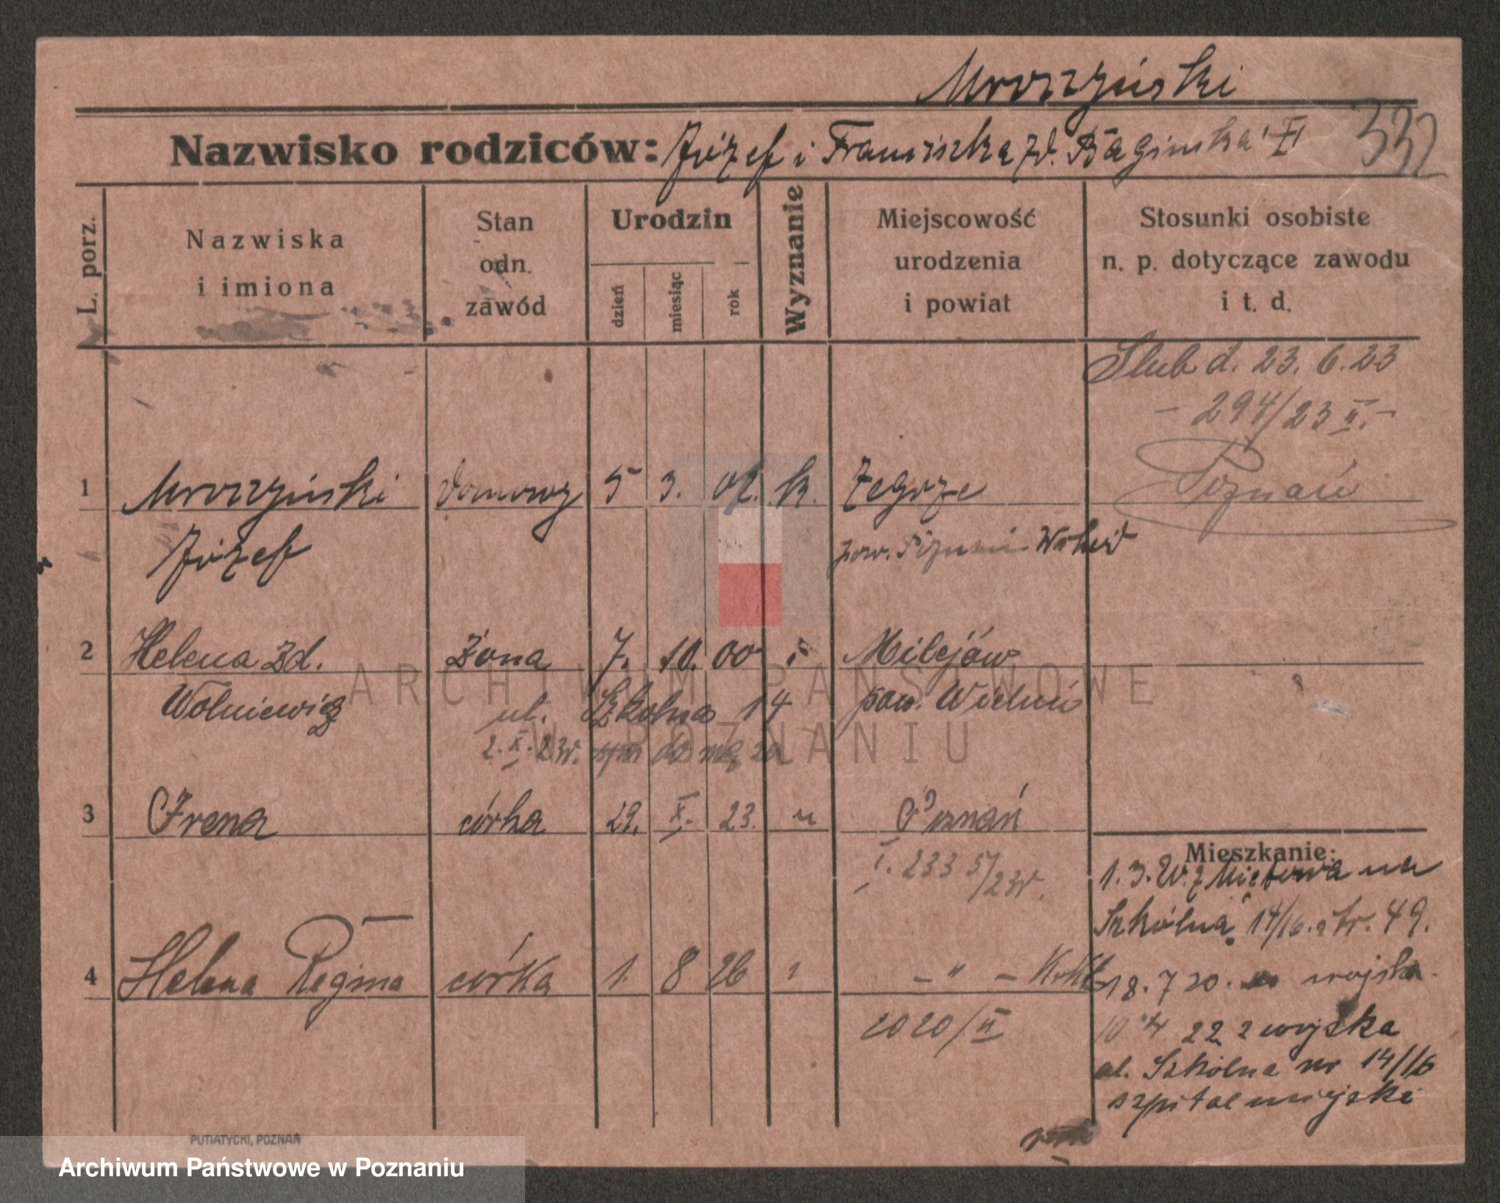 Mroczyński
Nazwisko rodziców: Józef i Franciszka zd. Bagińska
332
L. porz.
Nazwiska
i imiona
Stan
odn.
zawód
Urodzin
dzień
miesiąc
rok
Wyznanie
Miejscowość
urodzenia
i powiat
Stosunki osobiste
n. p. dotyczące zawodu
i t. d.
Ślub d. 23. 6. 23
- 294/23 II. -
Poznań
1 Mroczyński domowy 5 3. k. Zegrze
Józef pow. Poznań Wschód
2 Helena zd. żona 7. 10. 00 Milejów
Wolniewicz ul. Szkolna 14 pow. Wieluń
2. X. 23r. do męża
3 Irena córka 29. X. 23. " Poznań
I. 233 5/23r.
4 Helena Regina córka 1. 8 26 " - " -
2020/II
Mieszkanie:
1. 3. na
Szkólna 14/16. str. 49.
18. 7 20. wojska
22 z wojska
ul. Szkólna nr 14/16
szpital miejski
PUTIATYCKI, POZNAŃ
ARCHIWUM PAŃSTWOWE
W POZNANIU
Archiwum Państwowe w Poznaniu